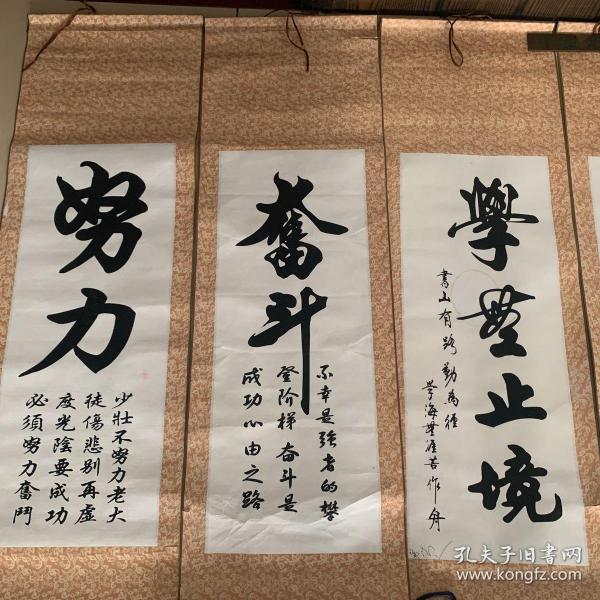 努力
少壯不努力老大
徒傷悲别再虛
度光陰要成功
必須努力奮鬥
奮斗
不幸是强者的攀
登阶梯 奋斗是
成功必由之路
學無止境
書山有路勤為徑
學海無涯苦作舟
孔夫子旧书网
www.kongfz.com